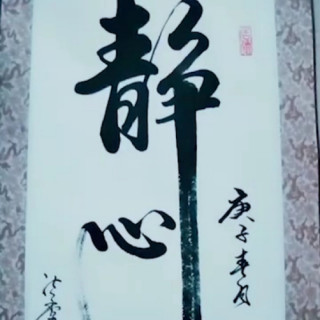 静心
庚子春月